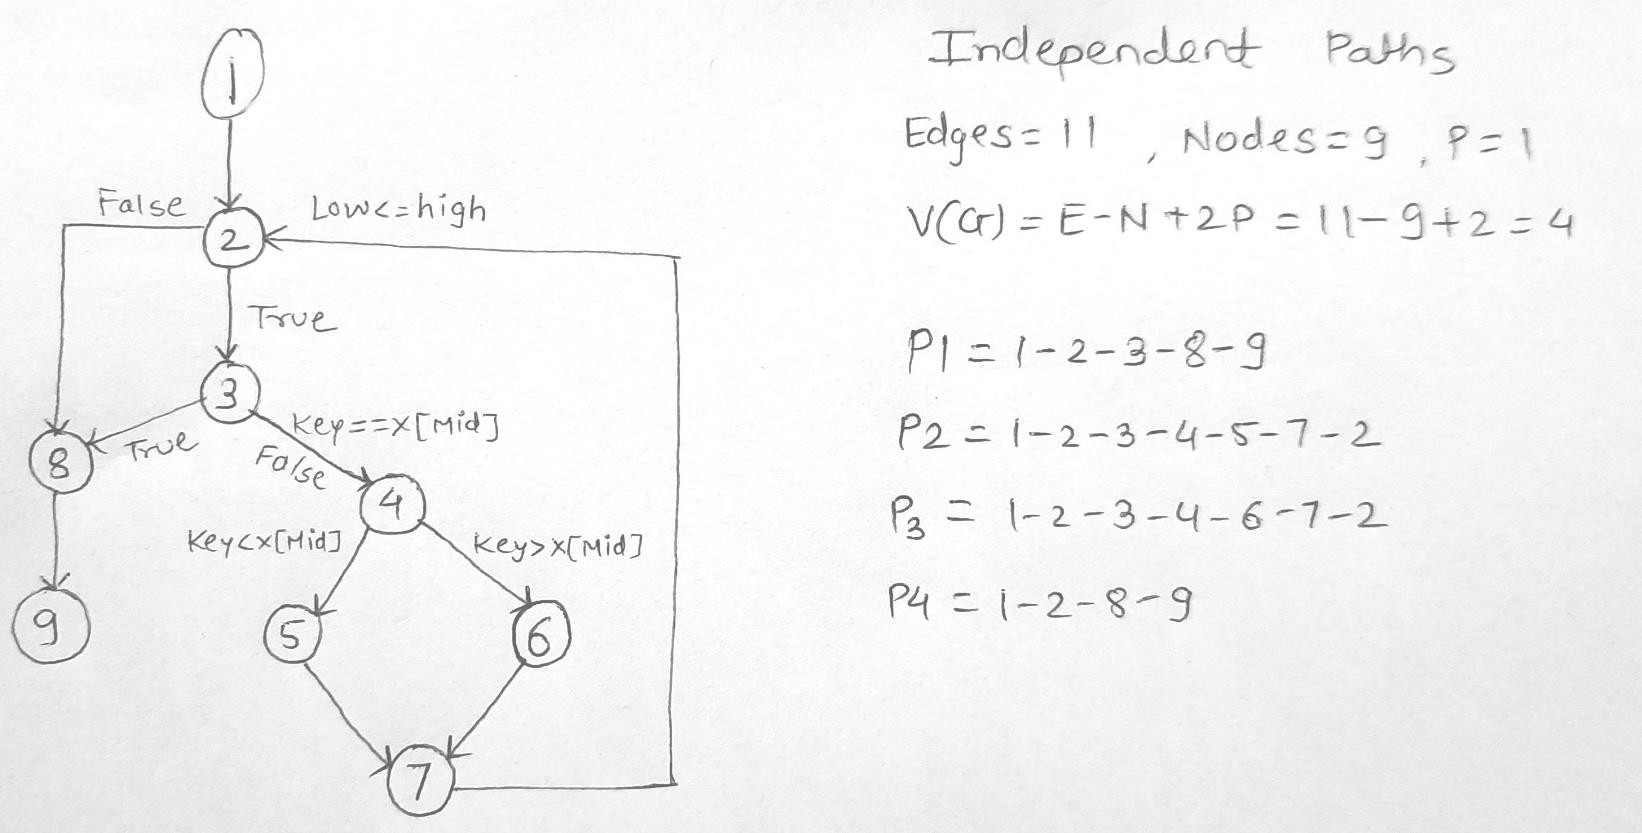 1
False
Low<=high
2
True
3
Key==X[Mid]
True
False
8
4
Key<X[Mid]
Key>X[Mid]
9
5
6
7
Independent Paths
Edges=11, Nodes=9, P=1
V(G) = E-N+2P = 11-9+2=4
P1 = 1-2-3-8-9
P2 = 1-2-3-4-5-7-2
P3 = 1-2-3-4-6-7-2
P4 = 1-2-8-9